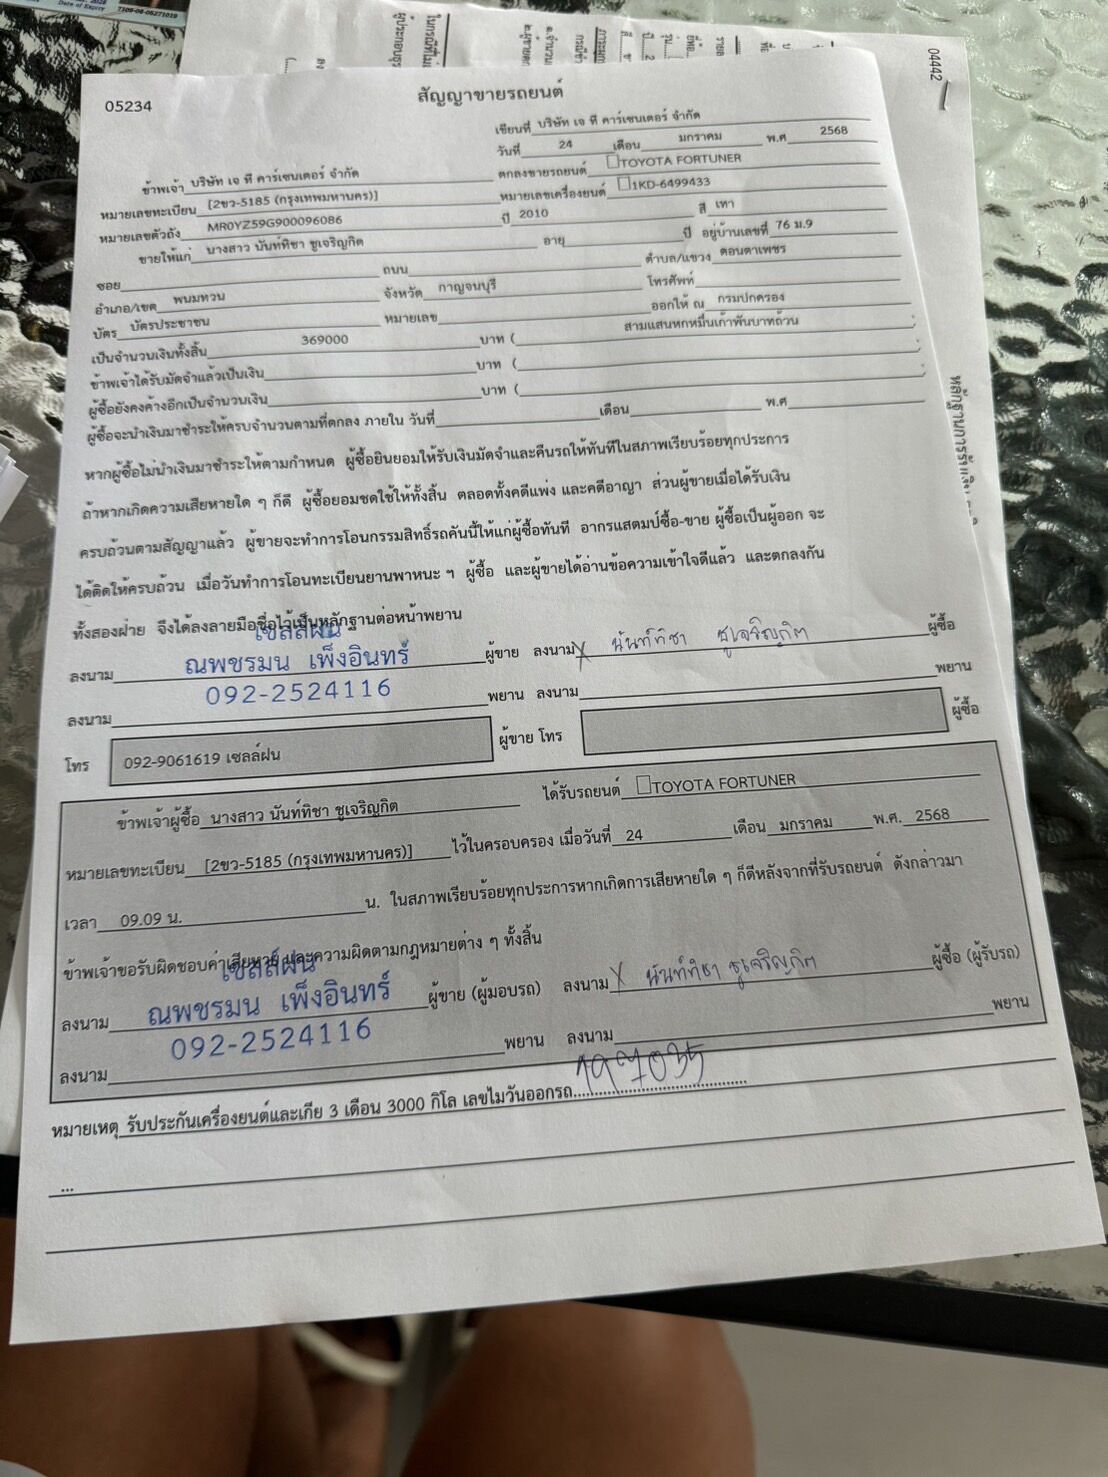 Date of Expiry
7109-06-05271019
04442
05234
สัญญาขายรถยนต์
เขียนที่ บริษัท เจ ที คาร์เซนเตอร์ จำกัด
วันที่ 24 เดือน มกราคม พ.ศ 2568
ข้าพเจ้า บริษัท เจ ที คาร์เซนเตอร์ จำกัด ตกลงขายรถยนต์ TOYOTA FORTUNER
หมายเลขทะเบียน [2ขว-5185 (กรุงเทพมหานคร)] หมายเลขเครื่องยนต์ 1KD-6499433
หมายเลขตัวถัง MR0YZ59G900096086 ปี 2010 สี เทา
ขายให้แก่ นางสาว นันท์ทิชา ชูเจริญกิต อายุ ปี อยู่บ้านเลขที่ 76 ม.9
ซอย ถนน ตำบล/แขวง ดอนตาเพชร
อำเภอ/เขต พนมทวน จังหวัด กาญจนบุรี โทรศัพท์
บัตร บัตรประชาชน หมายเลข ออกให้ ณ กรมปกครอง
เป็นจำนวนเงินทั้งสิ้น 369000 บาท ( สามแสนหกหมื่นเก้าพันบาทถ้วน
ข้าพเจ้าได้รับมัดจำแล้วเป็นเงิน บาท (
ผู้ซื้อยังคงค้างอีกเป็นจำนวนเงิน บาท (
ผู้ซื้อจะนำเงินมาชำระให้ครบจำนวนตามที่ตกลง ภายใน วันที่ เดือน พ.ศ
หากผู้ซื้อไม่นำเงินมาชำระให้ตามกำหนด ผู้ซื้อยินยอมให้รับเงินมัดจำและคืนรถให้ทันทีในสภาพเรียบร้อยทุกประการ
ถ้าหากเกิดความเสียหายใด ๆ ก็ดี ผู้ซื้อยอมชดใช้ให้ทั้งสิ้น ตลอดทั้งคดีแพ่ง และคดีอาญา ส่วนผู้ขายเมื่อได้รับเงิน
ครบถ้วนตามสัญญาแล้ว ผู้ขายจะทำการโอนกรรมสิทธิ์รถคันนี้ให้แก่ผู้ซื้อทันที อากรแสตมป์ซื้อ-ขาย ผู้ซื้อเป็นผู้ออก จะ
ได้ติดให้ครบถ้วน เมื่อวันทำการโอนทะเบียนยานพาหนะ ฯ ผู้ซื้อ และผู้ขายได้อ่านข้อความเข้าใจดีแล้ว และตกลงกัน
ทั้งสองฝ่าย จึงได้ลงลายมือชื่อไว้เป็นหลักฐานต่อหน้าพยาน
เซลล์ฝน
ลงนาม ณพชรมน เพ็งอินทร์ ผู้ขาย ลงนาม X นันท์ทิชา ชูเจริญกิต ผู้ซื้อ
092-2524116
ลงนาม พยาน ลงนาม พยาน
โทร 092-9061619 เซลล์ฝน ผู้ขาย โทร ผู้ซื้อ
ข้าพเจ้าผู้ซื้อ นางสาว นันท์ทิชา ชูเจริญกิต ได้รับรถยนต์ TOYOTA FORTUNER
หมายเลขทะเบียน [2ขว-5185 (กรุงเทพมหานคร)] ไว้ในครอบครอง เมื่อวันที่ 24 เดือน มกราคม พ.ศ. 2568
เวลา 09.09 น. น. ในสภาพเรียบร้อยทุกประการหากเกิดการเสียหายใด ๆ ก็ดีหลังจากที่รับรถยนต์ ดังกล่าวมา
ข้าพเจ้าขอรับผิดชอบค่าเสียหาย และความผิดตามกฎหมายต่าง ๆ ทั้งสิ้น
เซลล์ฝน
ลงนาม ณพชรมน เพ็งอินทร์ ผู้ขาย (ผู้มอบรถ) ลงนาม X นันท์ทิชา ชูเจริญกิต ผู้ซื้อ (ผู้รับรถ)
092-2524116
ลงนาม พยาน ลงนาม พยาน
หมายเหตุ รับประกันเครื่องยนต์และเกีย 3 เดือน 3000 กิโล เลขไมวันออกรถ
...